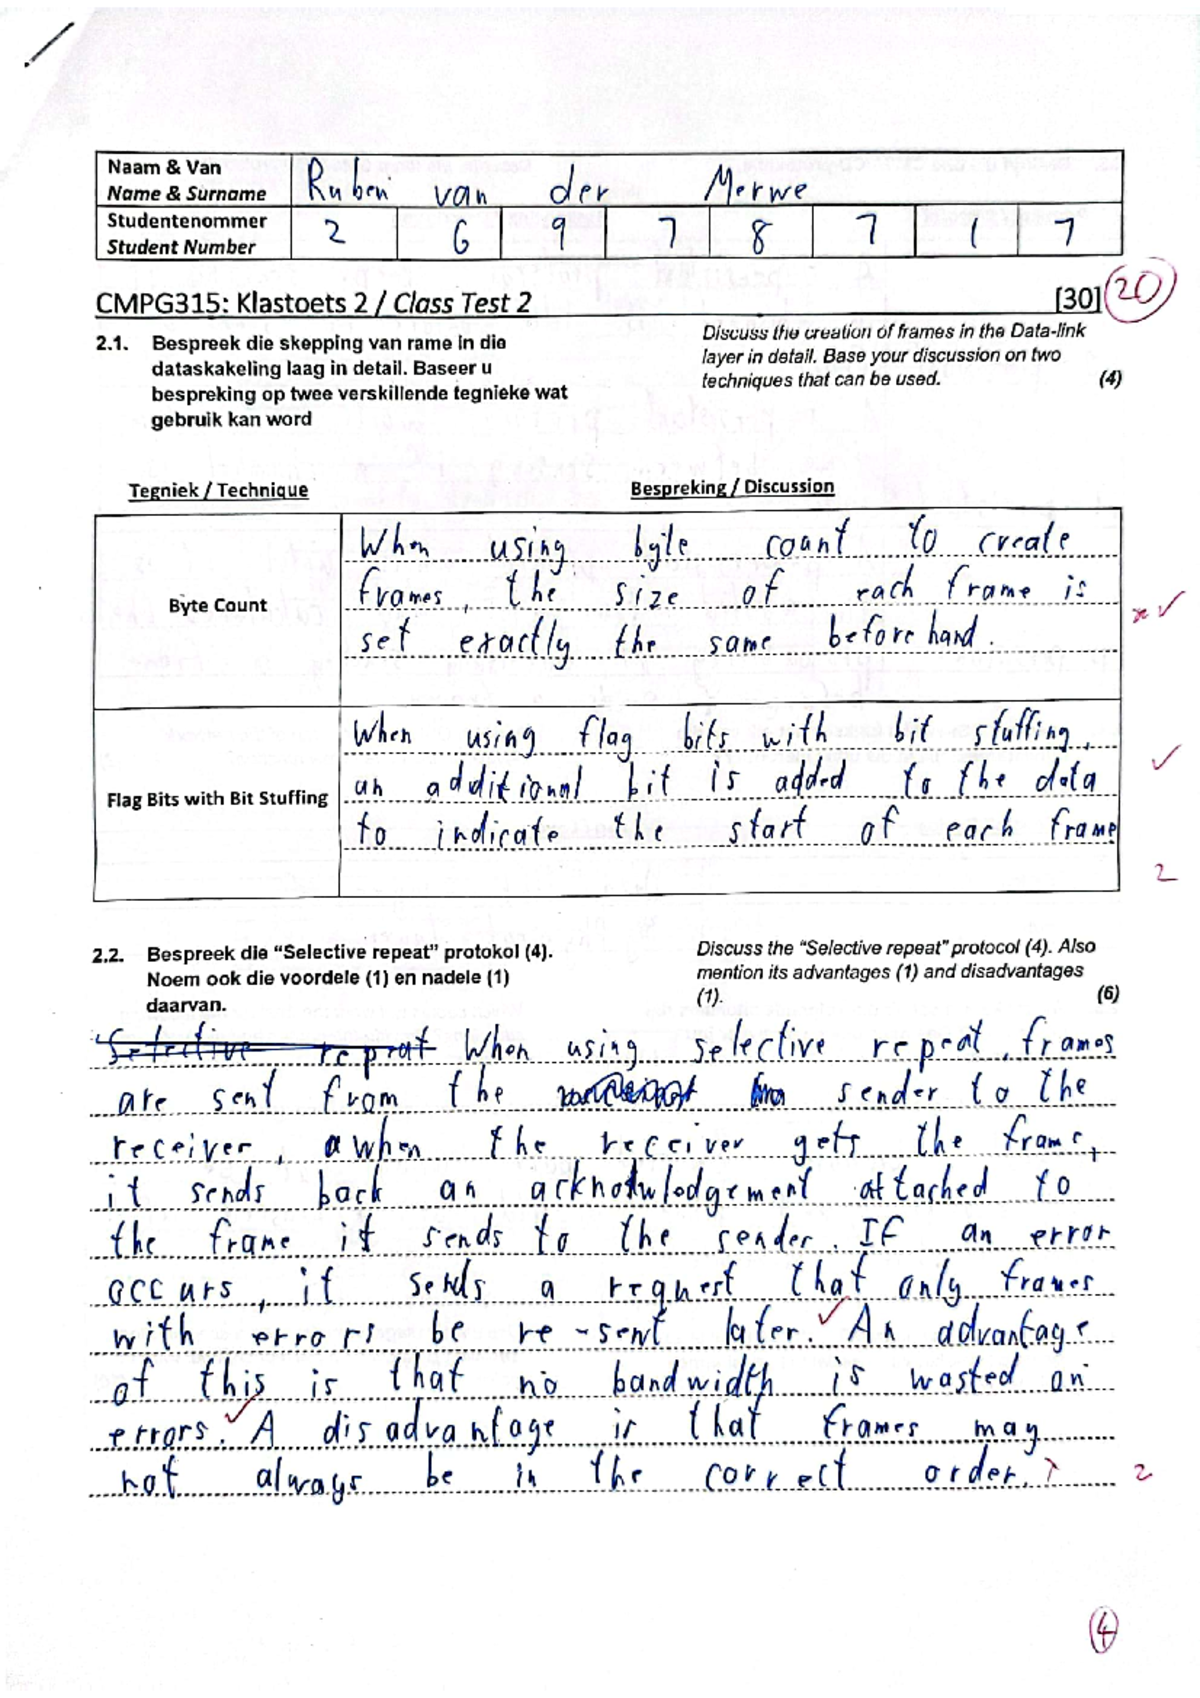 Naam & Van
Name & Surname
Ruben van der Merwe
Studentenommer
Student Number
2 6 9 7 8 7 1 7
CMPG315: Klastoets 2 / Class Test 2 [30] 20
2.1. Bespreek die skepping van rame in die
dataskakeling laag in detail. Baseer u
bespreking op twee verskillende tegnieke wat
gebruik kan word
Discuss the creation of frames in the Data-link
layer in detail. Base your discussion on two
techniques that can be used. (4)
Tegniek / Technique
Bespreking / Discussion
Byte Count
When using byte count to create
frames, the size of each frame is
set exactly the same beforehand.
Flag Bits with Bit Stuffing
When using flag bits with bit stuffing,
an additional bit is added to the data
to indicate the start of each frame
2
2.2. Bespreek die “Selective repeat” protokol (4).
Noem ook die voordele (1) en nadele (1)
daarvan.
Discuss the “Selective repeat” protocol (4). Also
mention its advantages (1) and disadvantages
(1). (6)
Selective repeat When using selective repeat, frames
are sent from the sender to the
receiver, when the receiver gets the frame,
it sends back an acknowledgement attached to
the frame it sends to the sender. If an error
occurs, it sends a request that only frames
with errors be re-sent later. An advantage
of this is that no bandwidth is wasted on
errors. A disadvantage is that frames may
not always be in the correct order. ? 2
4